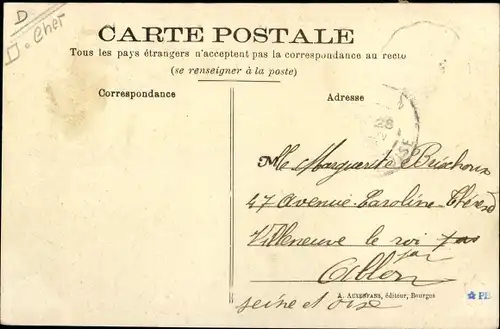 D
D. Cher
CARTE POSTALE
Tous les pays étrangers n'acceptent pas la correspondance au recto
(se renseigner à la poste)
Correspondance
Adresse
28
OISE
Me Marguerite
47 Avenue Caroline
Villeneuve le roi
par
Ablon
A. AUXENFANS, éditeur, Bourges
seine et oise
PB